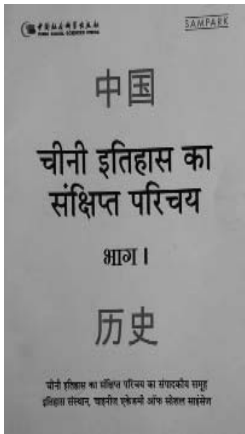 中国社会科学出版社
CHINA SOCIAL SCIENCES PRESS
SAMPARK
中国
चीनी इतिहास का
संक्षिप्त परिचय
भाग I
历史
चीनी इतिहास का संक्षिप्त परिचय का संपादकीय समूह
इतिहास संस्थान, चाइनीज एकेडमी ऑफ सोशल साइंसेज